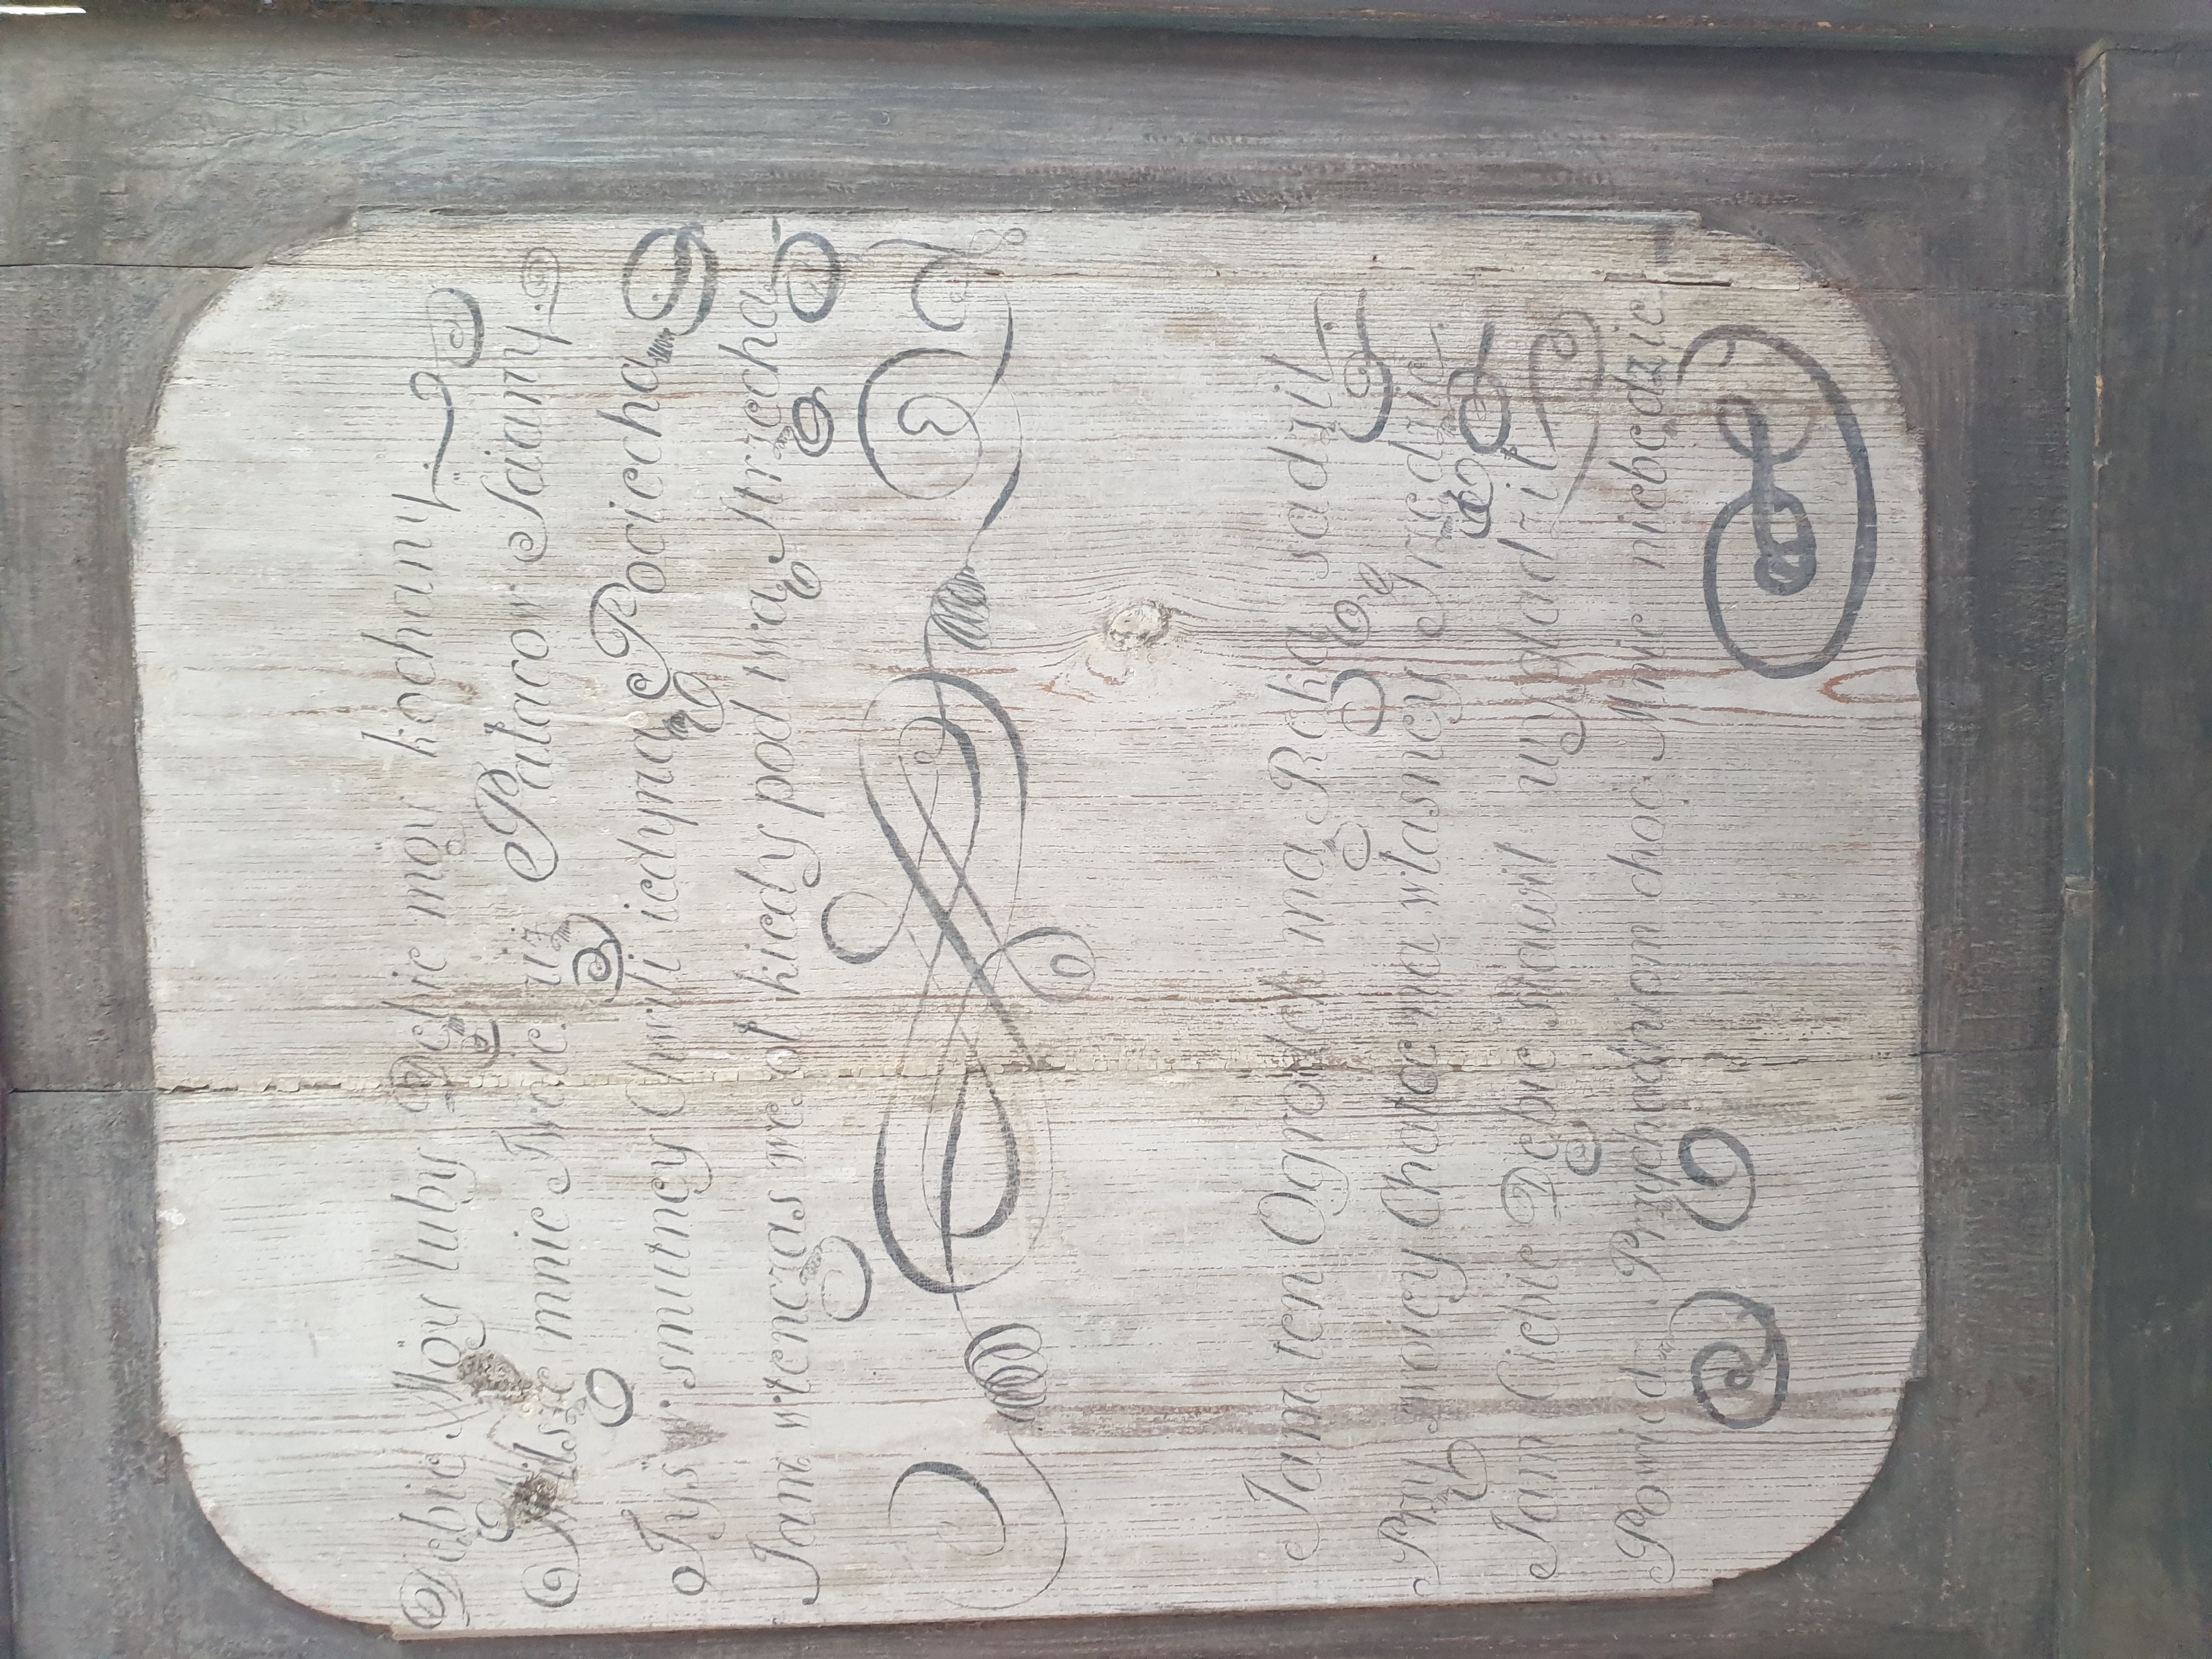 Dębie Móy luby Dębie mòy kochany
Milsze mnie Twoie niz Pałacow Sciany
Tyś w smutney Chwili iedyna Pociecha
Jam wtenczas we. ol kiedy pod twą strzecha
Jam ten Ogrodek mą Ręką sadził
Przy swoiey Chatce na własney Grzędzie
Jam Ciebie Dębie stawił wygładził
Powiedz Przychodniom choc Mnie niebędzie